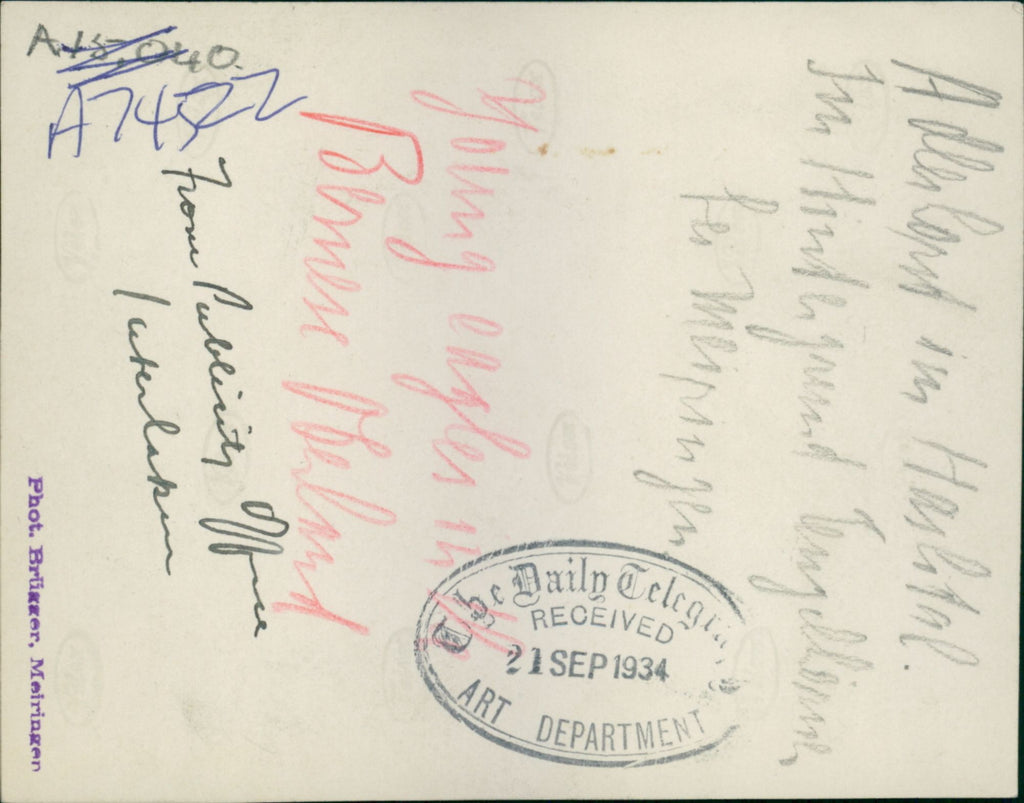 A15,040.
A7452Z
Adlerhorst im Haslital.
Im Hintergrund Engelhörner
bei Meiringen
Young eagles in the
Bernese Oberland
From Publicity Office
Interlaken
Phot. Brügger, Meiringen
The Daily Telegraph
RECEIVED
21 SEP 1934
ART DEPARTMENT